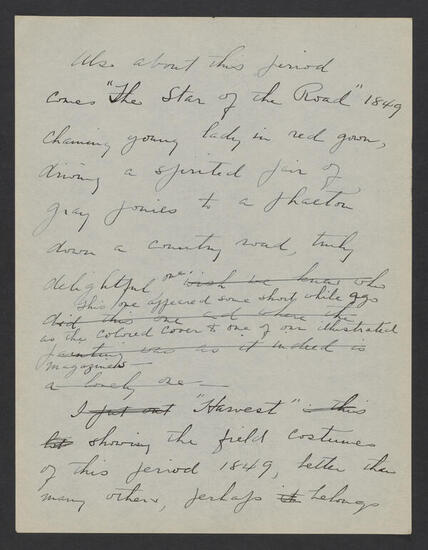 Also about this period
comes "The Star of the Road" 1849
chaming young lady in red gown,
driving a spirited pair of
gray ponies to a phaeton
down a country road, truly
delightful, one wish we knew who
This one appeared some short while ago
did this one and where the
as the colored cover to one of our illustrated
painting was as it indeed is
magazines —
a lovely one —
I put out "Harvest" this
showing the field costumes
of this period 1849, better than
many others, perhaps belongs